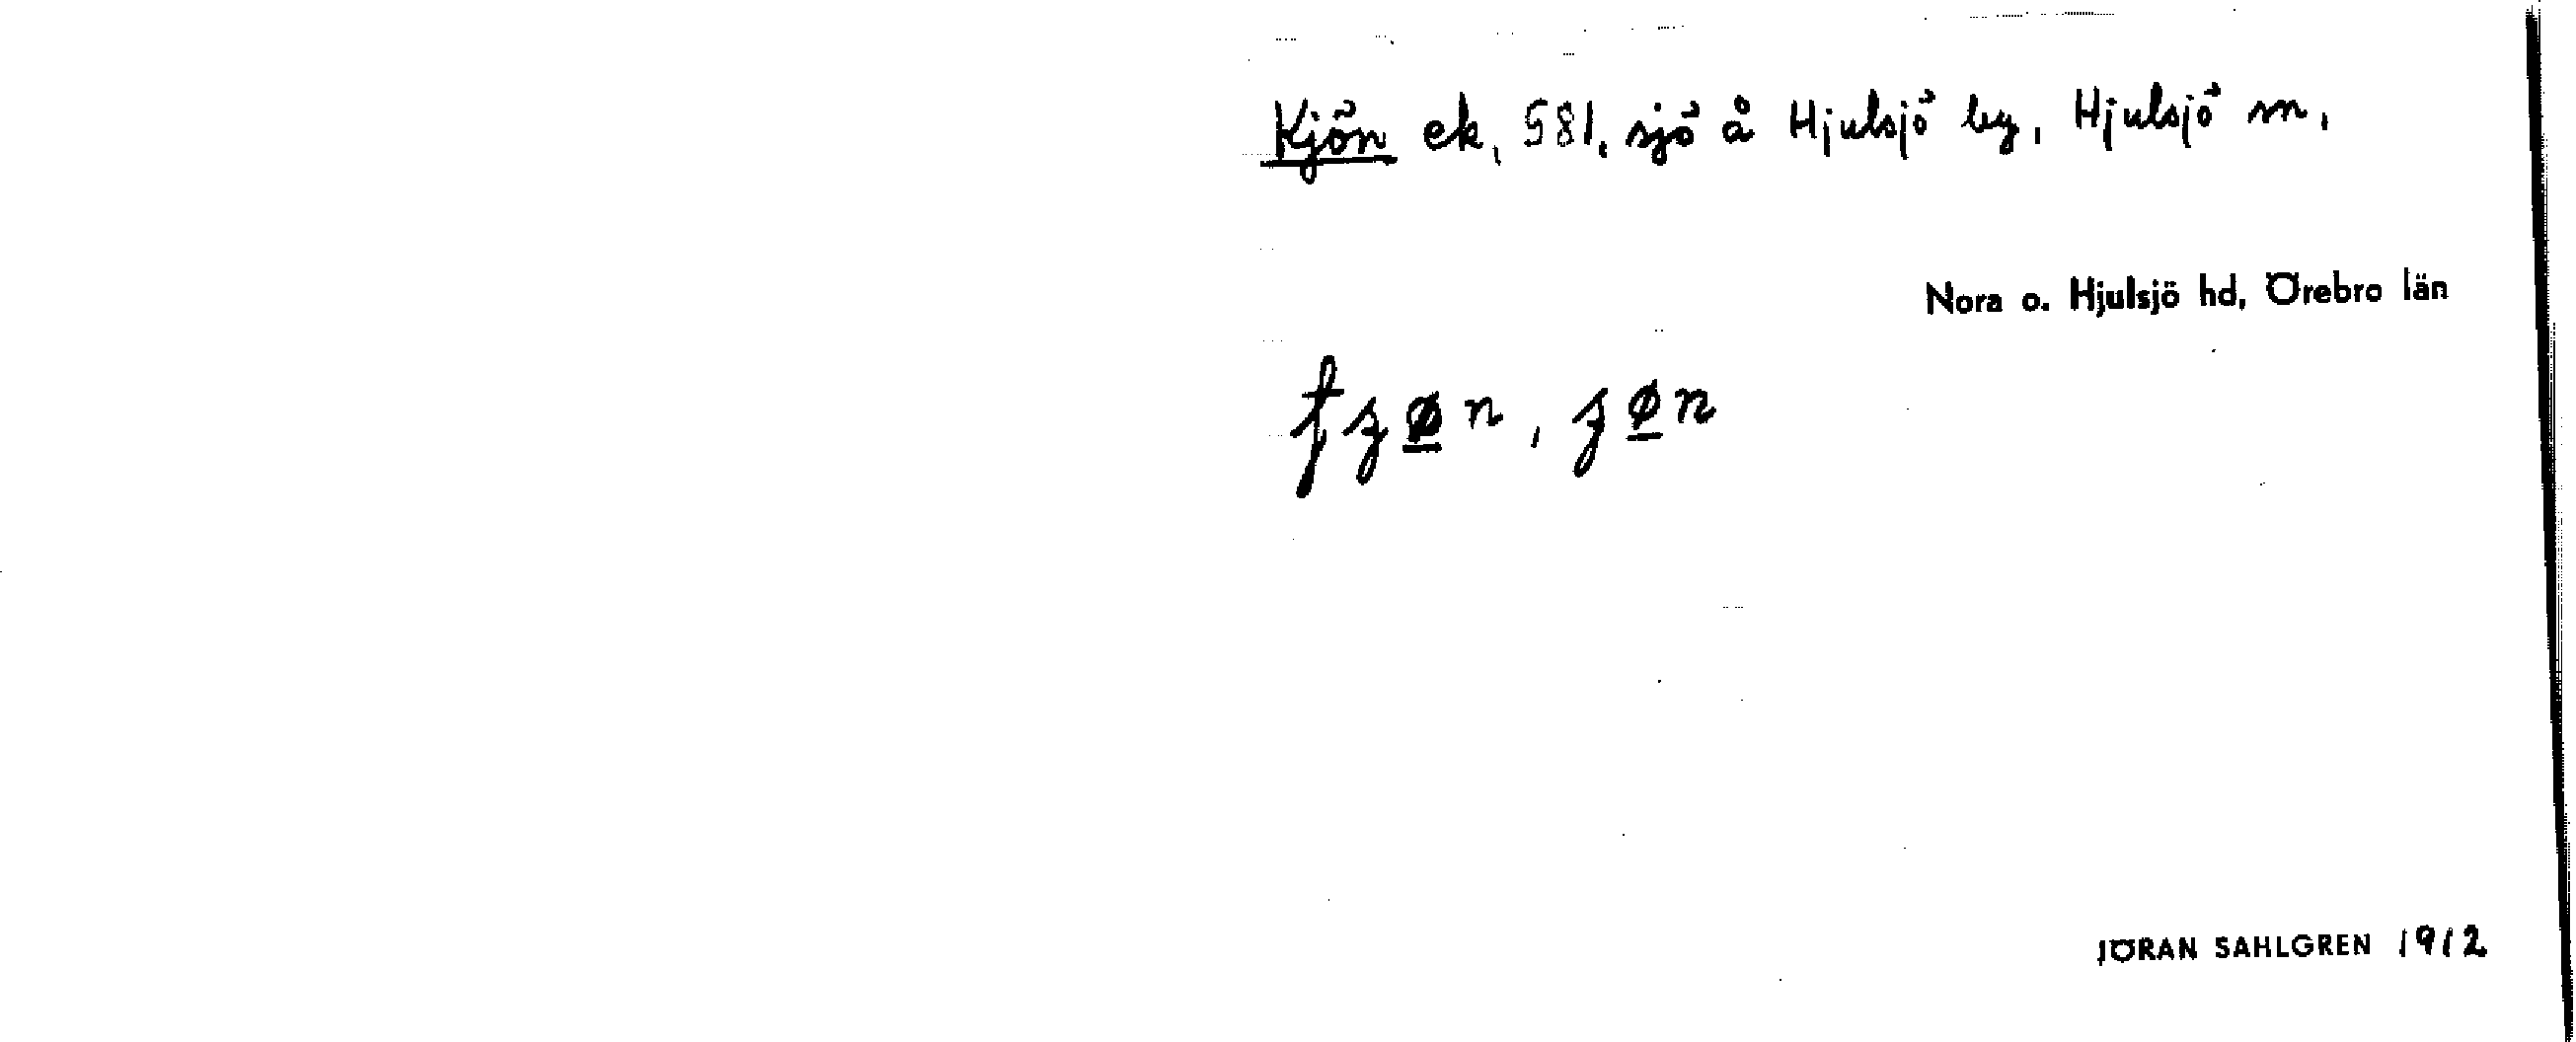 Kjön ek, 581, sjö å Hjulsjö by, Hjulsjö m,
Nora o. Hjulsjö hd, Örebro län
JÖRAN SAHLGREN 1912